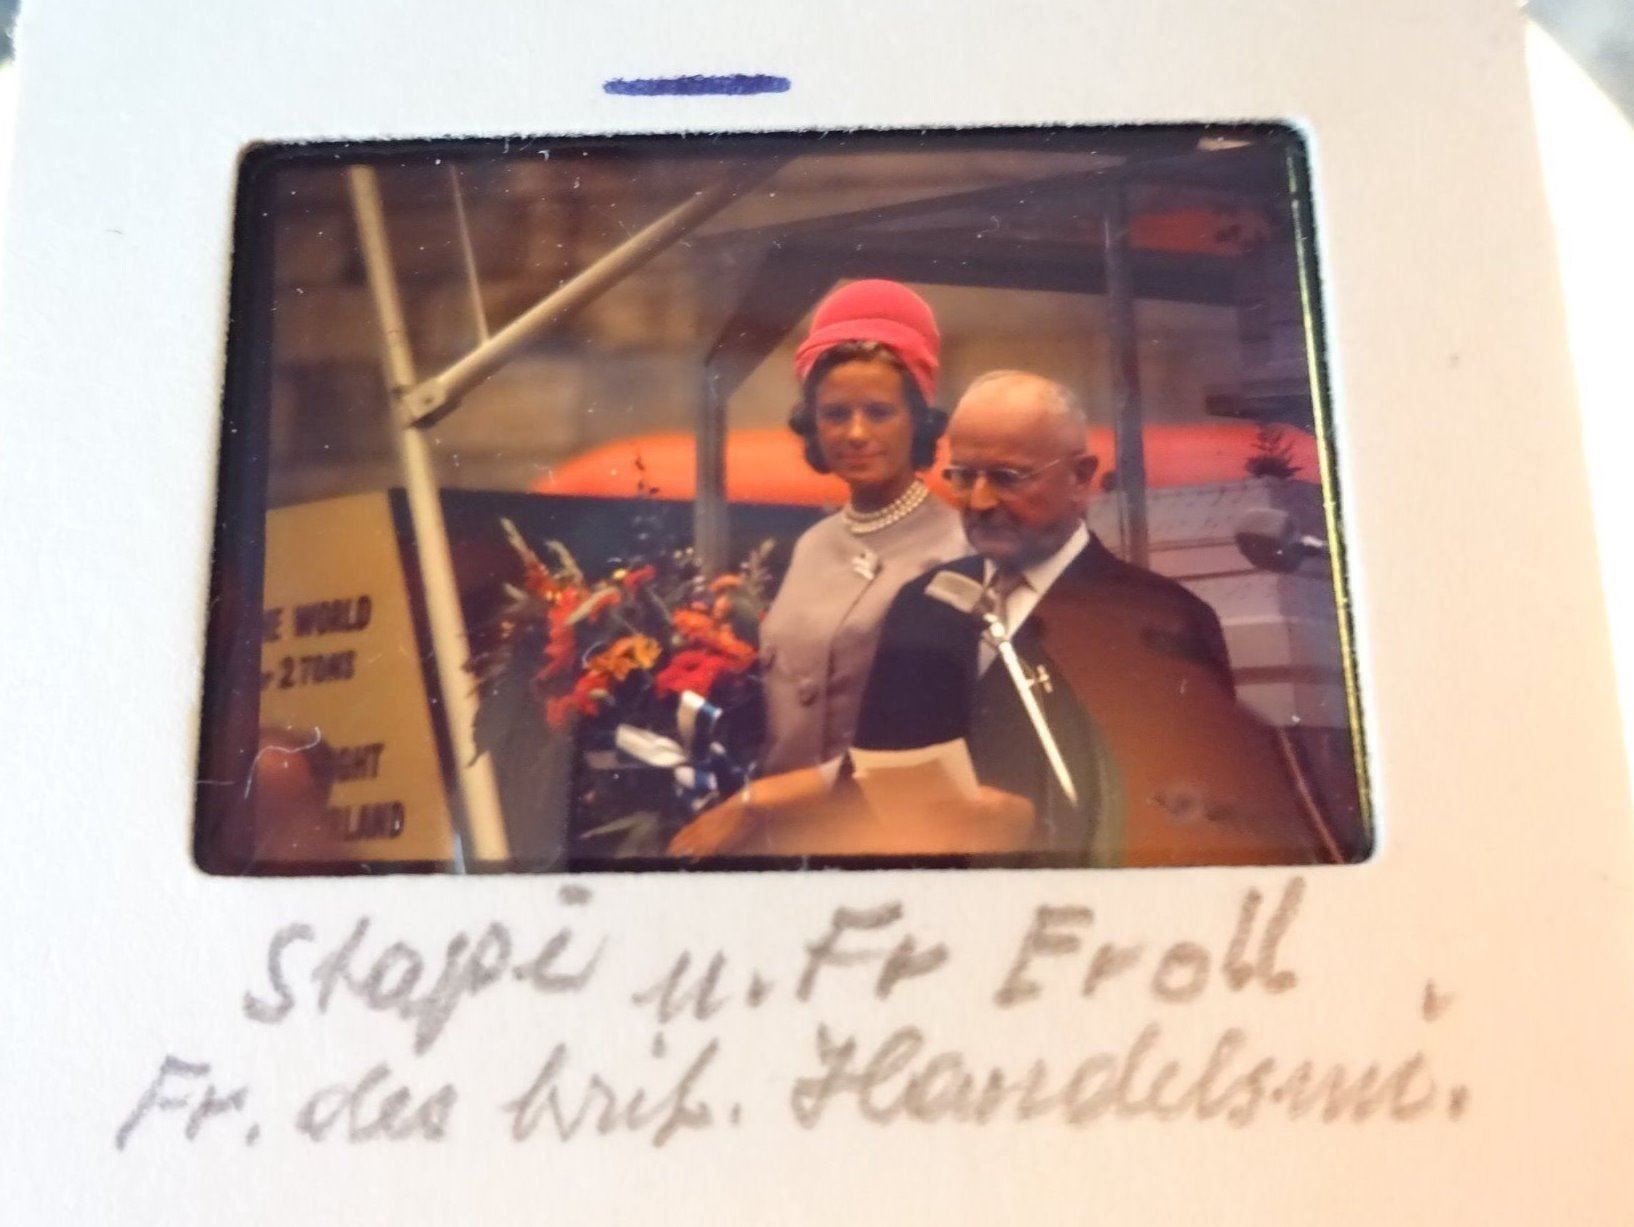 E WORLD
2 TONS
GHT
RLAND
Stapi u. Fr Eroll
Fr. des brit. Handelsmi.